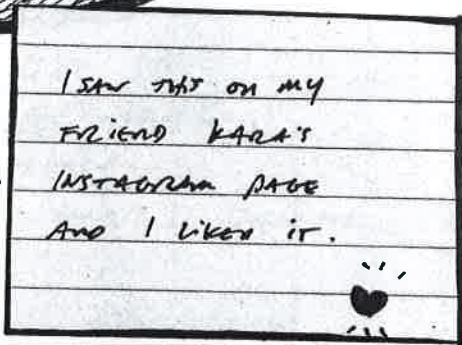 I SAW THIS ON MY
FRIEND KARA'S
INSTAGRAM PAGE
AND I LIKED IT.